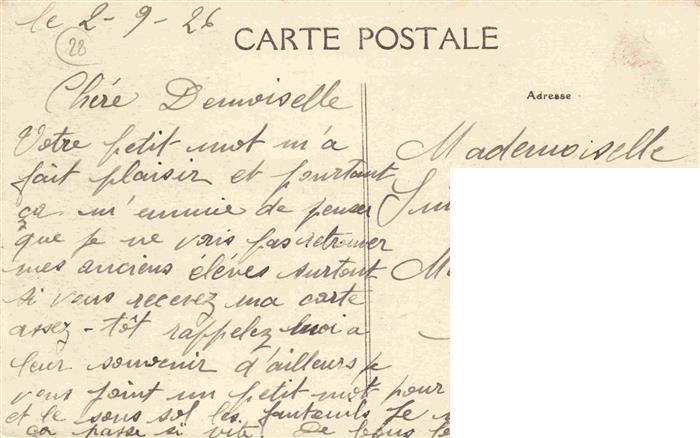 le 2-9-26
28
CARTE POSTALE
Chére Demoiselle
Adresse
Votre petit mot m'a
Mademoiselle
fait plaisir et pourtant
ça m'ennuie de penser
que je ne vais pas retrouver
mes anciens éléves surtout
si vous recevez ma carte
assez-tôt rappelez moi a
leur souvenir d'ailleurs je
vous joint un petit mot pour
et le sous sol les fauteuils Je
ça passe si vite! De bons